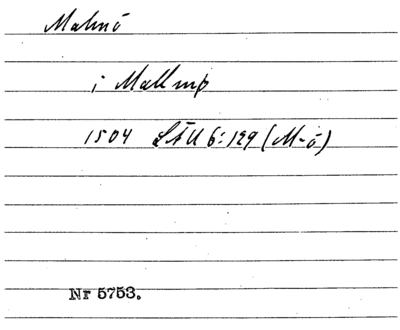 Malmö
i Malmö
1504 LÄU 6:129 (M-ö)
Nr 5753.